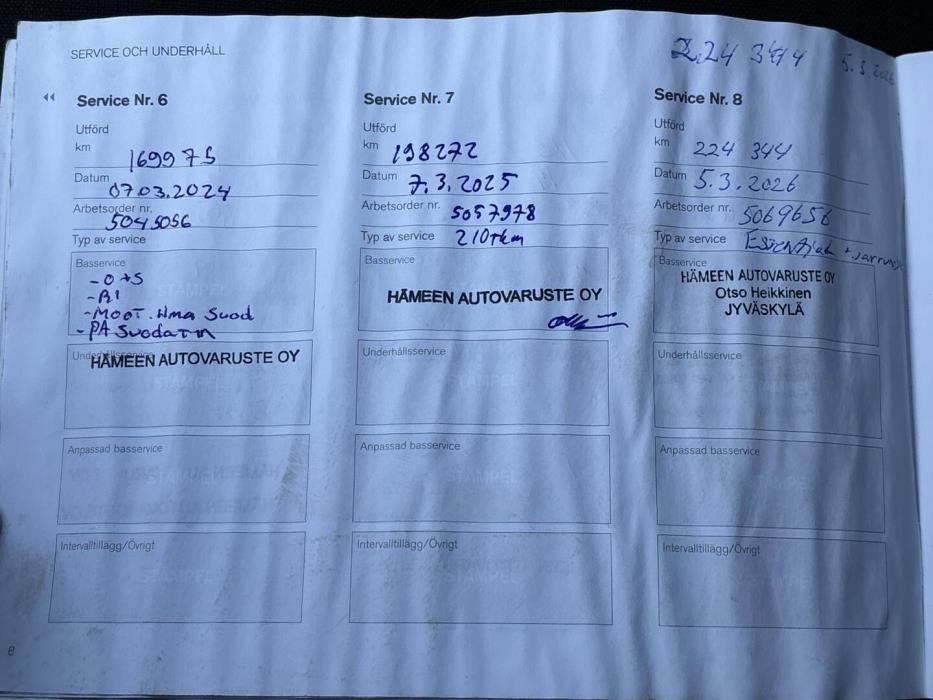 SERVICE OCH UNDERHÅLL
224 344 5.3.2026
Service Nr. 6
Utförd
km 169975
Datum 07.03.2024
Arbetsorder nr. 5045056
Typ av service
Basservice
- O+S
- A1
- MOOT. ilma Suod
- PA Suodatin
HÄMEEN AUTOVARUSTE OY
Anpassad basservice
Intervalltillägg/Övrigt
Service Nr. 7
Utförd
km 198272
Datum 7.3.2025
Arbetsorder nr. 5057978
Typ av service 210tkm
Basservice
HÄMEEN AUTOVARUSTE OY
Underhållsservice
Anpassad basservice
Intervalltillägg/Övrigt
Service Nr. 8
Utförd
km 224 344
Datum 5.3.2026
Arbetsorder nr. 5069656
Typ av service
Basservice
HÄMEEN AUTOVARUSTE OY
Otso Heikkinen
JYVÄSKYLÄ
Underhållsservice
Anpassad basservice
Intervalltillägg/Övrigt
8